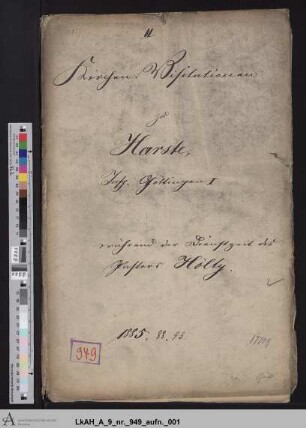 Kirchen-Visitationen
zu
Harste,
Insp. Göttingen I
während der Dienstzeit des
Pastors Hölty.
1885. 88. 95
949
LkAH_A_9_nr._949_aufn._001